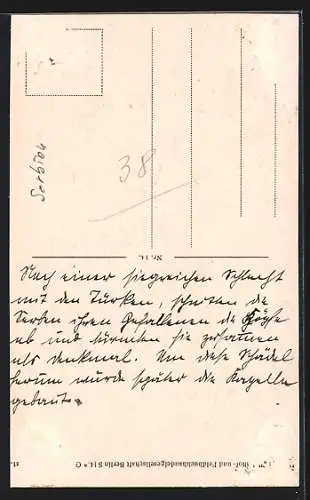 Serbien
38
Nr. 14.
Nach einer siegreichen Schlacht
mit den Türken, schnitten die
Serben ihren Gefallenen die Köpfe
ab und türmten sie zusammen
als Denkmal. Um diese Schädel
herum wurde später die Kapelle
gebaut.
und Feldbuchhandelgesellschaft Berlin S 14.